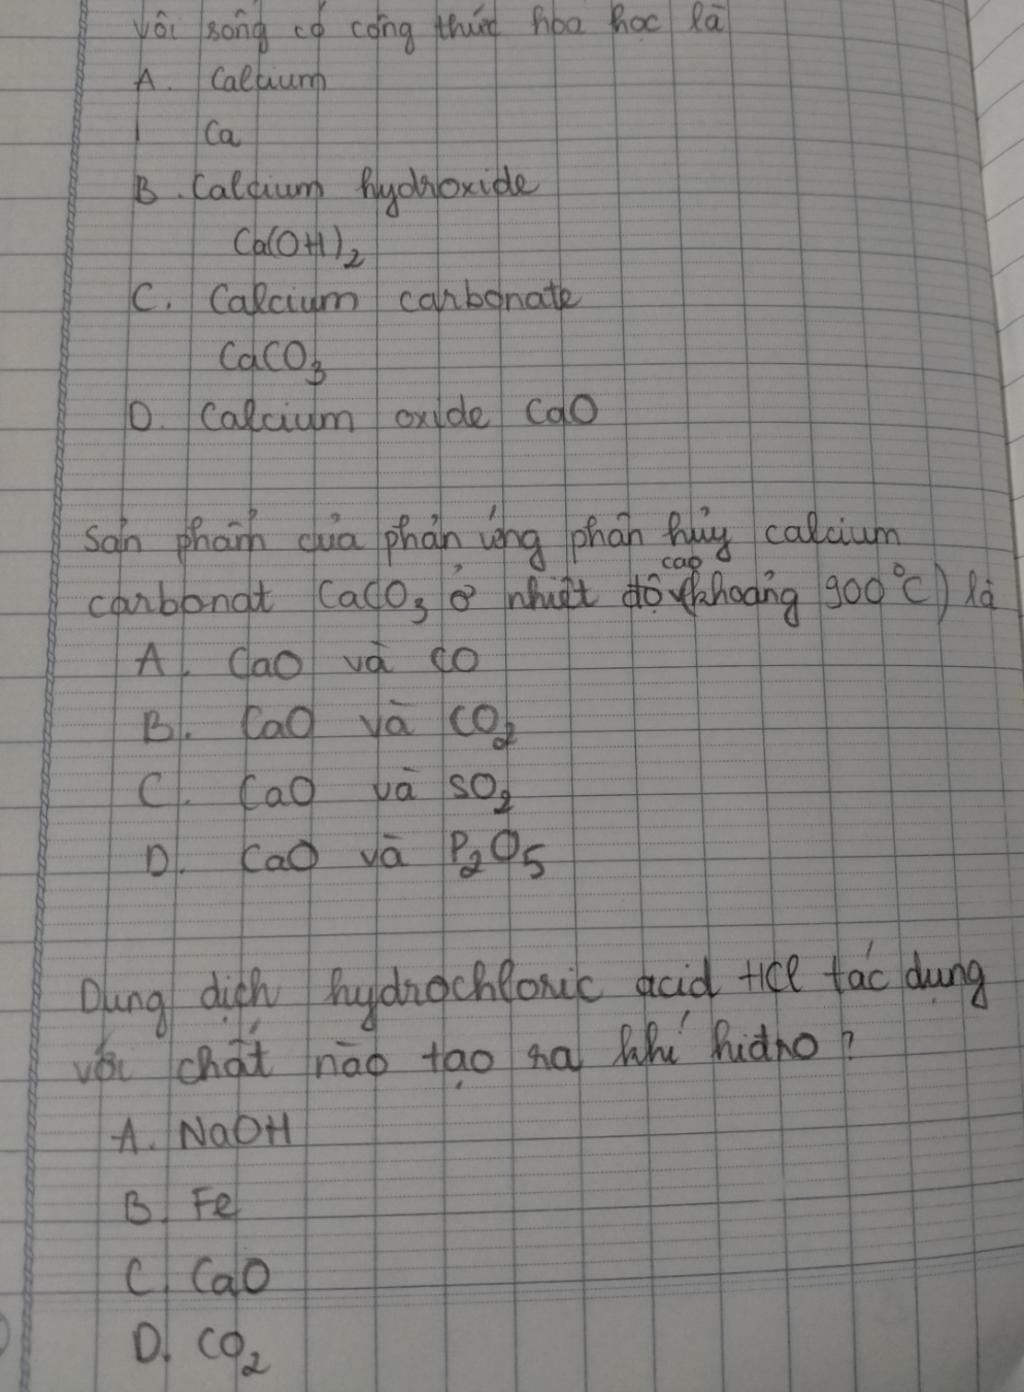 Vôi sống có công thức hóa học là
A. Calcium
Ca
B. Calcium hydroxide
Ca(OH)2
C. Calcium carbonate
CaCO3
D. Calcium oxide CaO
Sản phẩm của phản ứng phân hủy calcium
cao
carbonat CaCO3 ở nhiệt độ (khoảng 900°C) là
A. CaO và CO
B. CaO và CO2
C. CaO và SO2
D. CaO và P2O5
Dung dịch hydrochloric acid HCl tác dụng
với chất nào tạo ra khí hidro?
A. NaOH
B. Fe
C. CaO
D. CO2